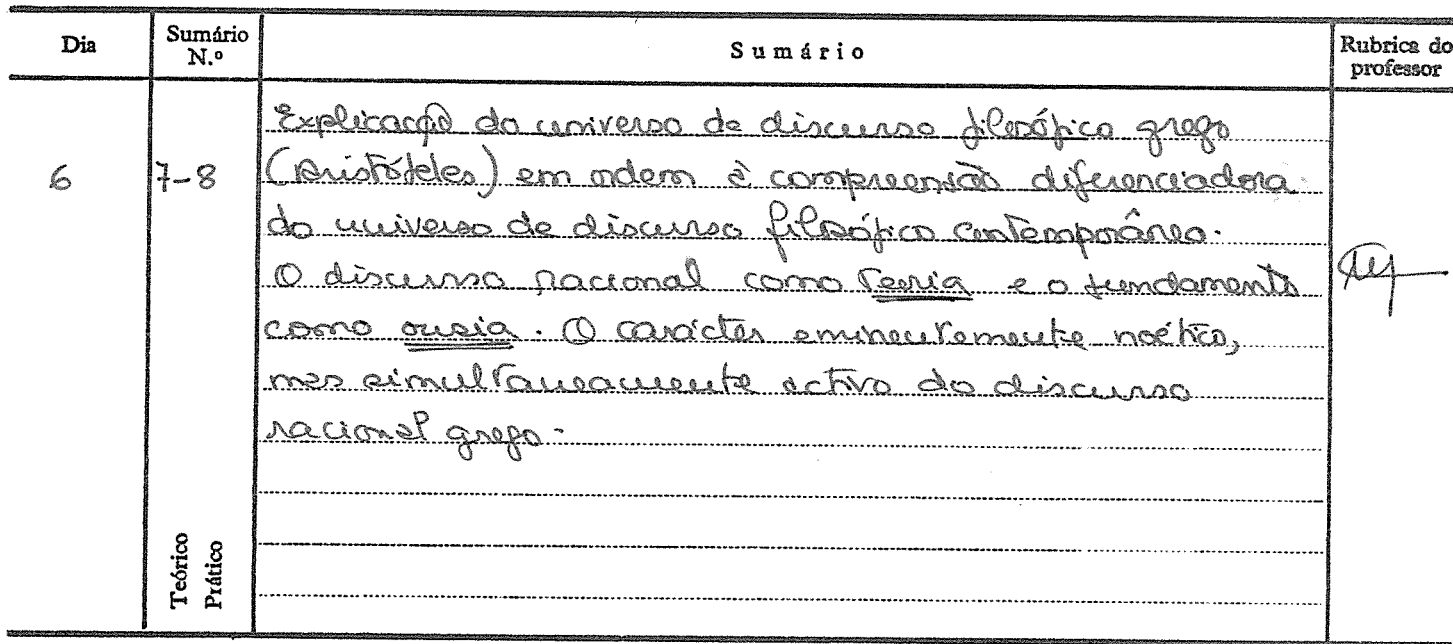 Dia Sumário N.º Sumário Rubrica do professor
Explicação do universo de discurso filosófico grego
6 7-8 (Aristóteles) em ordem à compreensão diferenciadora
do universo de discurso filosófico contemporâneo.
O discurso racional como teoria e o fundamento
como ousia. O carácter eminentemente noético,
mas simultaneamente activo do discurso
racional grego.
Teórico
Prático